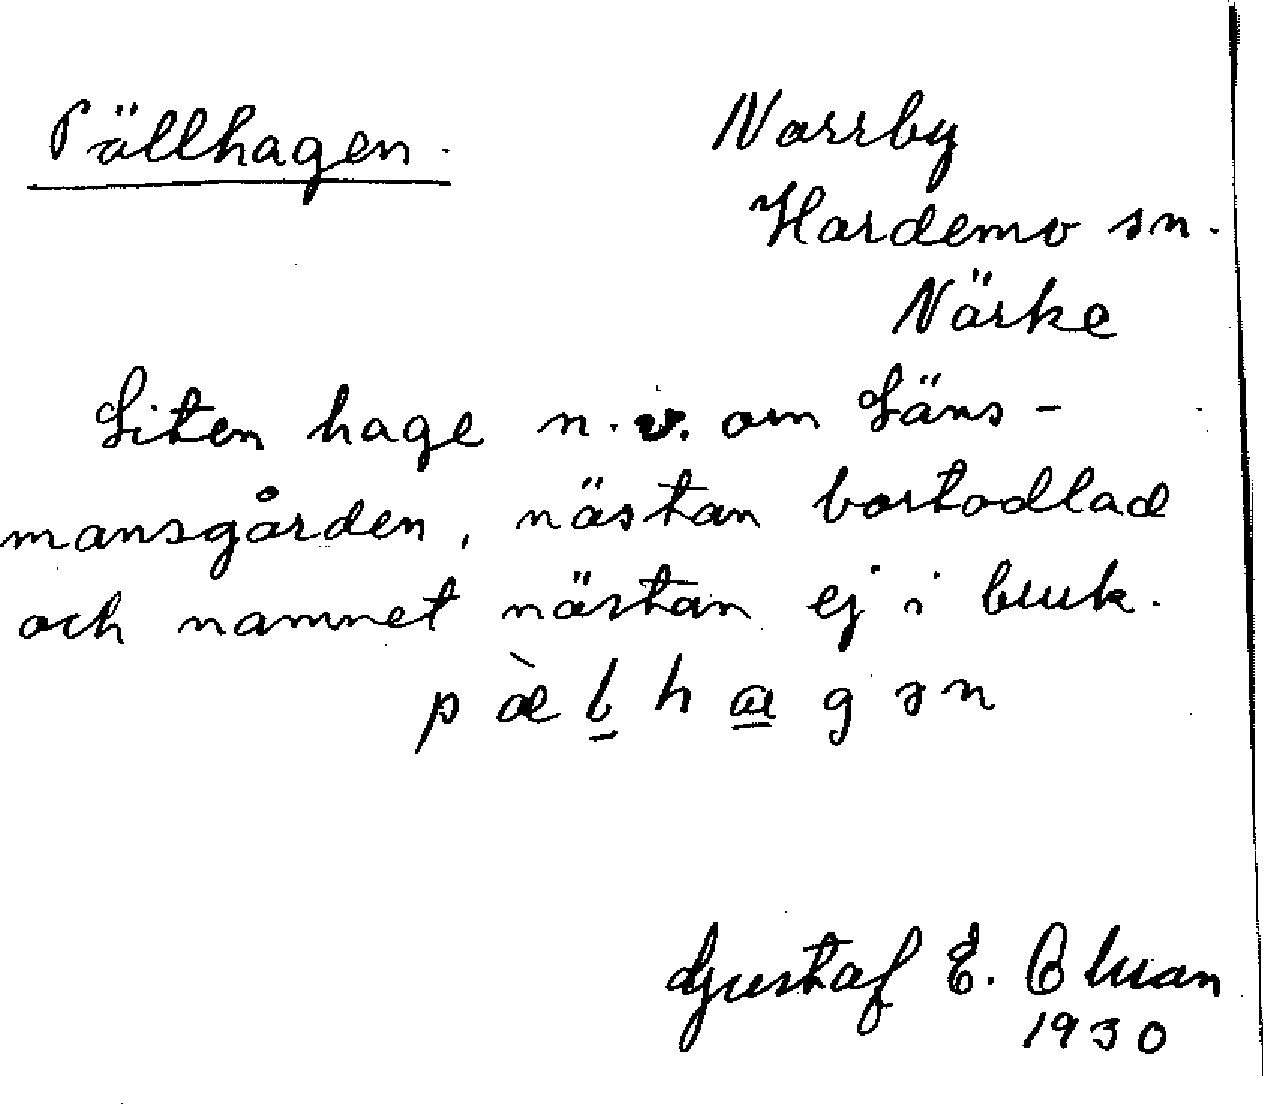 Pällhagen.
Norrby
Hardemo sn.
Närke
Liten hage n.v. om Läns-
mansgården, nästan bortodlad
och namnet nästan ej i bruk.
Gustaf E.
1930